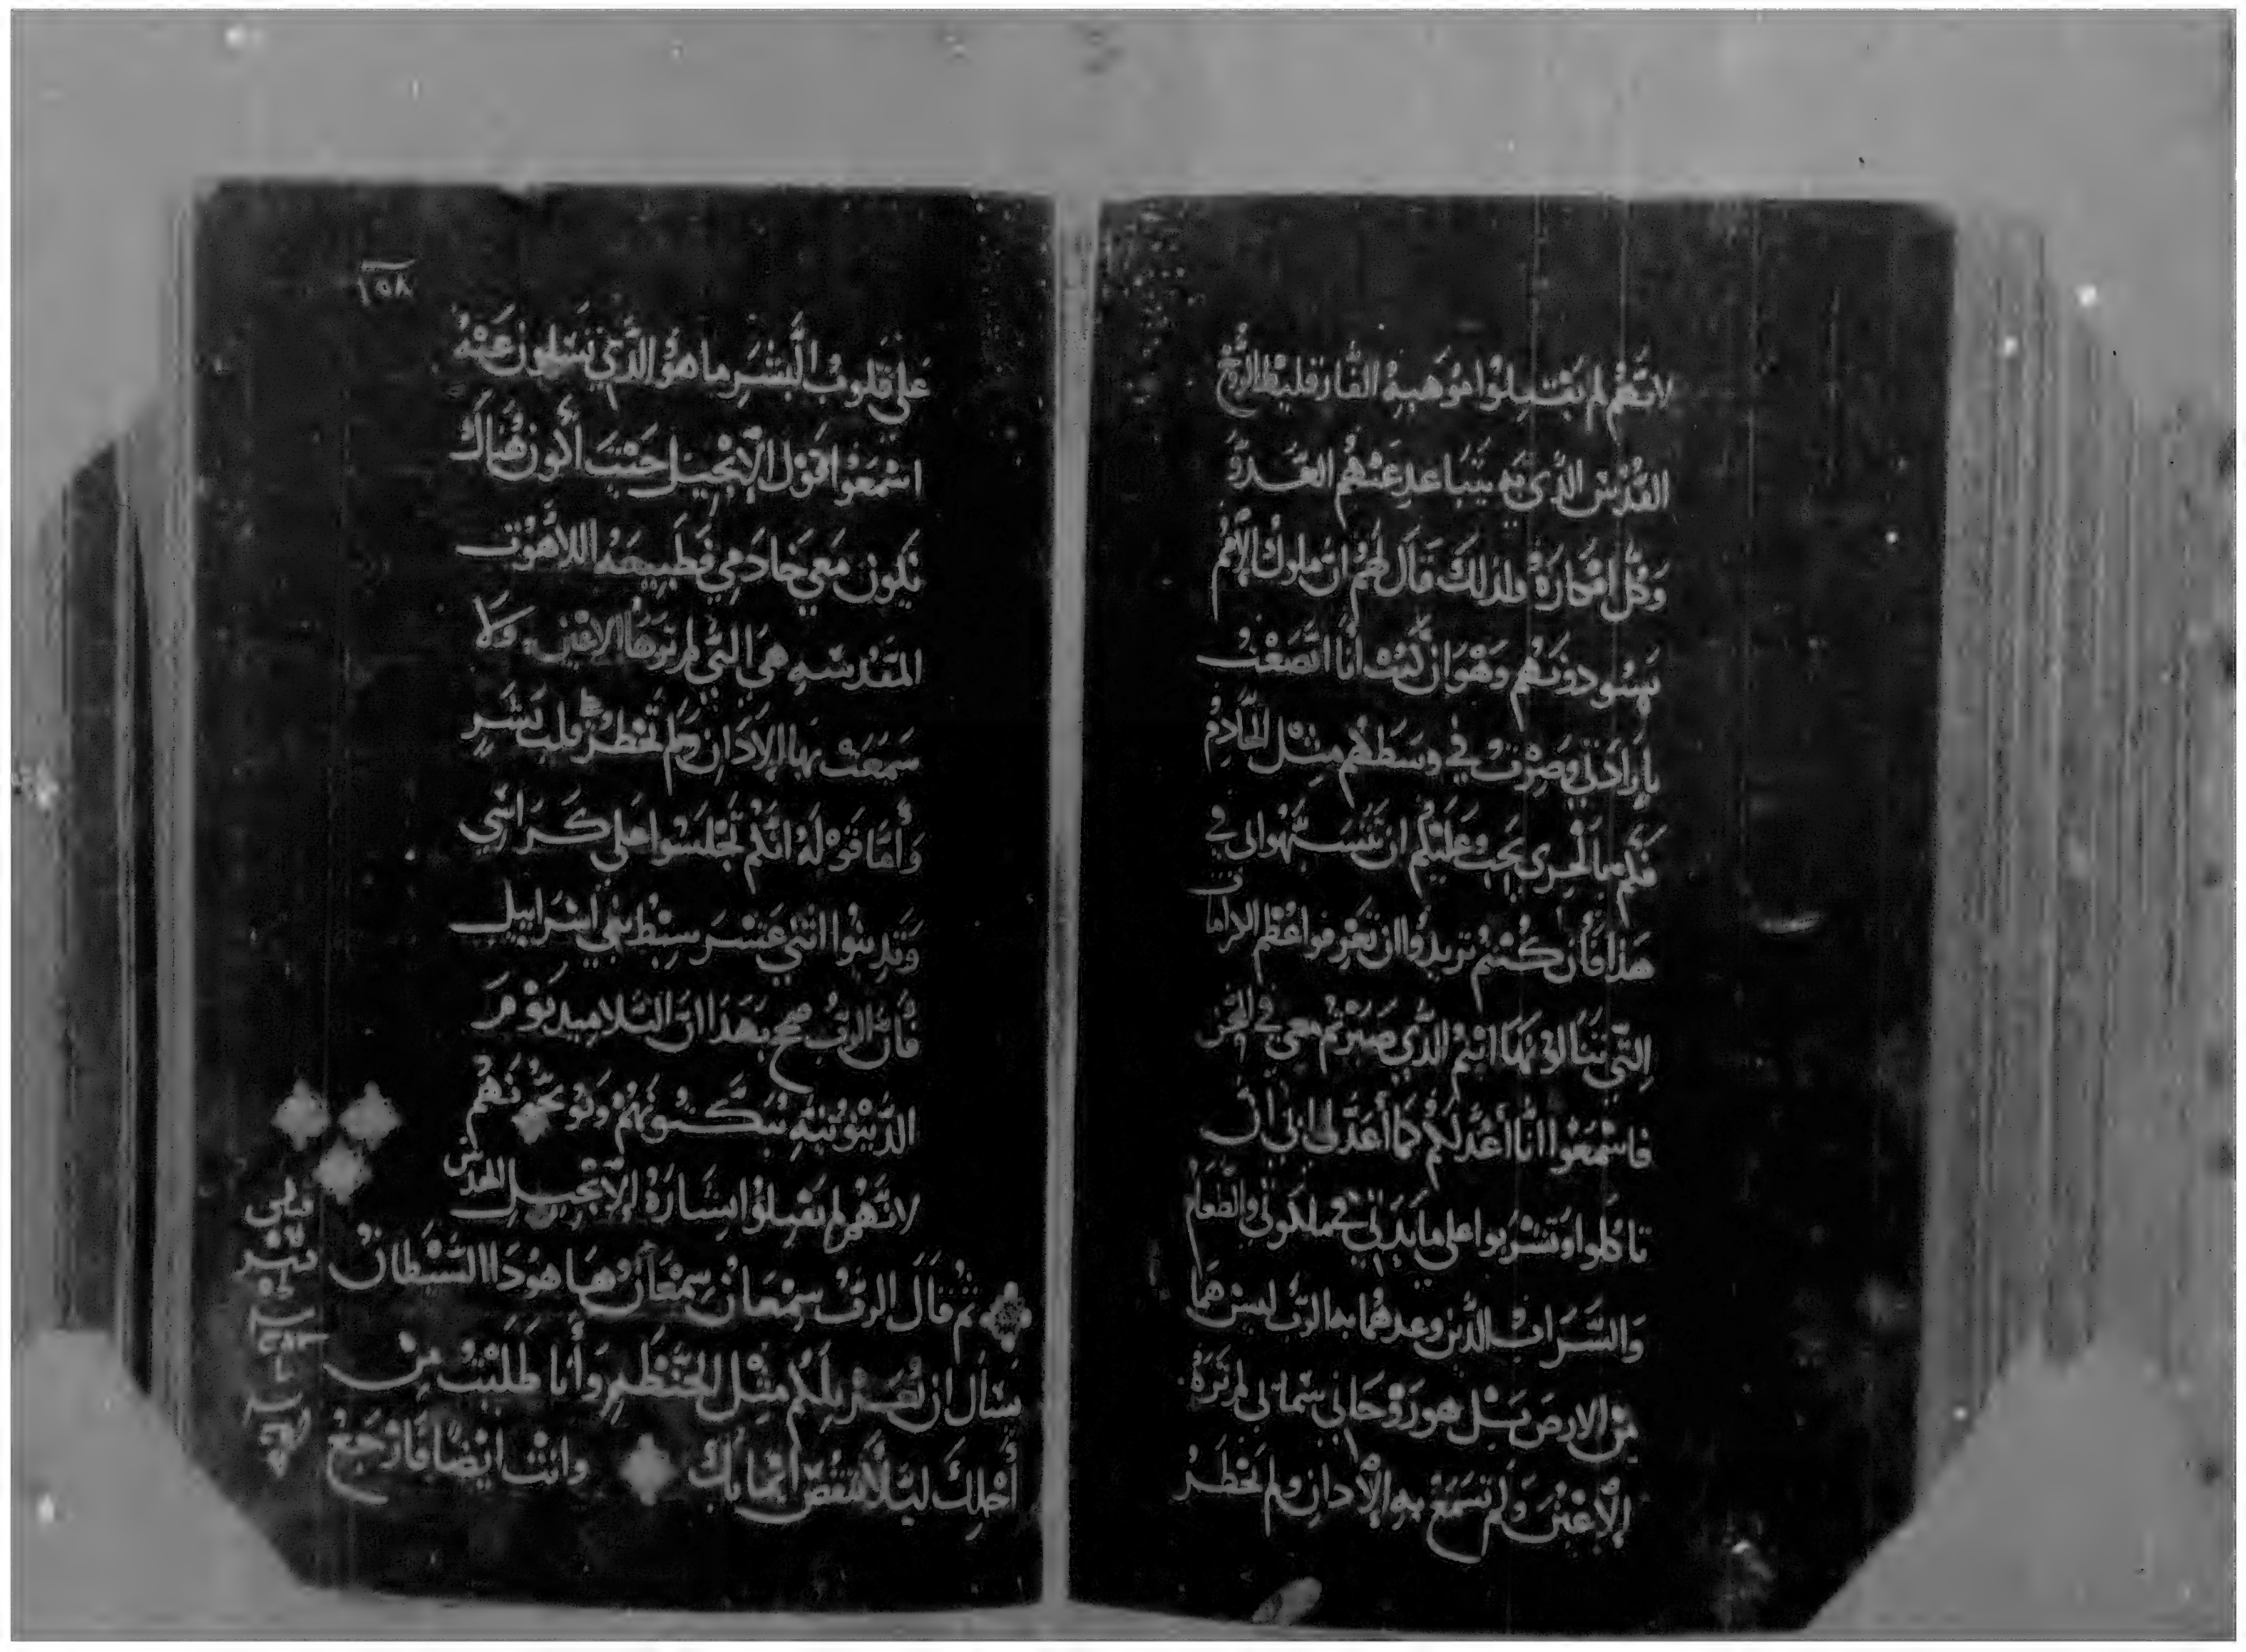 لانَّهُم لم يَقْبِلُوا مَوهَبة الفَارقليْط الرُوح
القُدْس الَّذي بِه يتَباعد عَنْهُم العَدوّ
وَكُل افكارَهُ ولدلكَ قَال لَهُم ان ملوكُ الاُمم
يَسُودونَهُم وَهُوَ ان كُنْت أنَا اتضَعْت
بارادَتي وصِرْت في وسَطكُم مِثْل الخَادِمُ
فَكَم بالحرى يَجبُ عَليْكُم ان تتشَبَّهوا بى في
هَذا فَأن كُنْتُم تريدُوا ان تَعْرفوا عُظم الكرامات
التي تنَالوا بهَا انتُم الَّذي صَبَرْتم معي في التجَارِب
فاسْمَعُوا انا أعُد لَكُم كَمَا أعَدَّ لي ابي ان
تاكلوا وتَشْربوا على مايدَتي في ملكوتي والطَعَام
وَالشَرَابْ الَّذين وعدهُما به الربُ ليس هُما
مِنْ الارضَ بَلْ هو رَوْحَاني سَمائي لم تَرَهُ
الأعْيُن وَلَم تسَمَعْ بهِ الأدان ولم يَخْطرُ
١٥٨
عَلى قلوبُ البَشَر ما هو الَّذي تَسَلون عَنْهُ
اسْمَعُوا قَوْل الإنْجيل حَيْثَ أكون هُناكَ
تكون مَعي خادَمي فطَبِيعَة اللاهُوت
المقَدسَه هىَ التي لم تَرهَا الاعْين وَلا
سَمَعَتْ بهَا الادَان ولَم تَخْطر على قلب بَشَر
وَأمّا قَوْله انكُم تَجْلسُوا على كَرَاسَي
وَتَدينُوا اثْني عَشَر سِبْط بَني اسْرَاييل
فأن الرَبُ صحح بهَذا ان التَلاميد يَوْمَ
الدَيْنُونيَة يُبَكتُونَهُمْ وَيُوَبخُونَهُم
لانَّهُم لم يَقْبِلوُا بِشَارَةُ الإنْجيل المقدَّس
ثُم قَالَ الربُ سِمْعَانُ سِمْعَانُ هَا هودَا الشَيْطانُ
يَسْأل ان يُغَرْبلكُم مِثْل الحنْطَه وَأنا طَلَبْتُ مِن
أجْلِكَ ليَلا يَنْقُصْ ايمَانُكَ وانت ايْضًا فَارْجَعْ